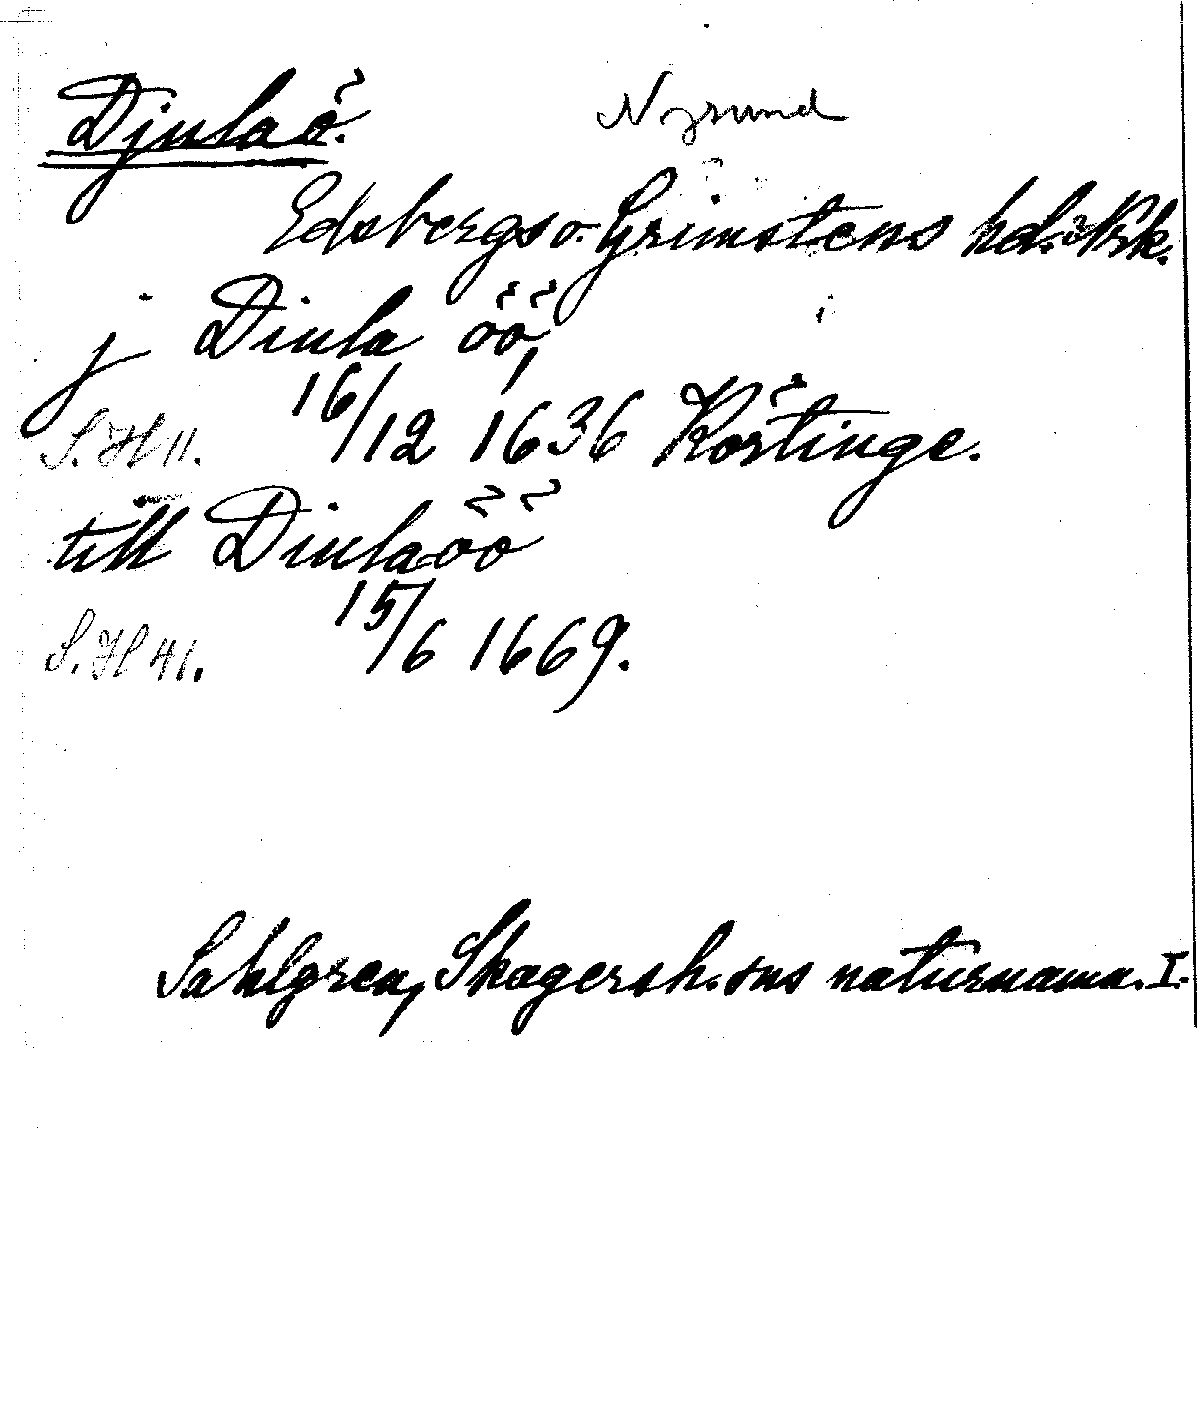 Djulaö. Nysund
Edsbergs o. Grimstens hd. Nrk.
j Diula öö,
S.H 11. 16/12 1636 Röstinge.
till Diulaöö
S.H 41. 15/6 1669.
Sahlgren, Skagersh. sns naturnamn. I.